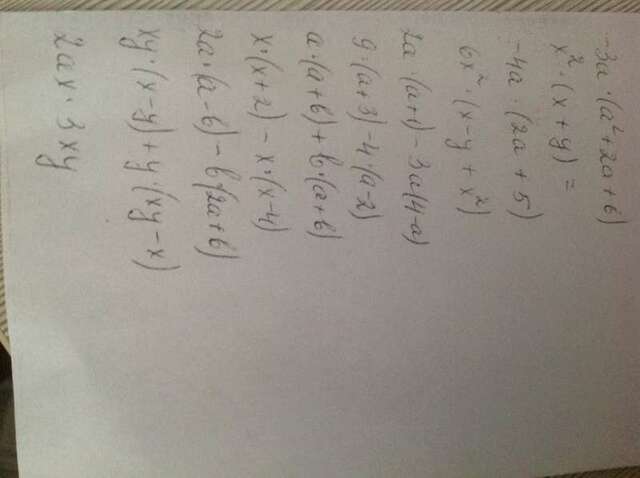 -3a · (a²+2a+b)
x² · (x+y) =
-4a · (2a+5)
6x² · (x-y+x²)
2a · (a+1) - 3a(4-a)
9·(a+3) - 4·(a-2)
a·(a+b) + b·(a+b)
x·(x+2) - x·(x-4)
2a·(a-b) - b(2a+b)
xy·(x-y) + y·(xy-x)
2ax · 3xy